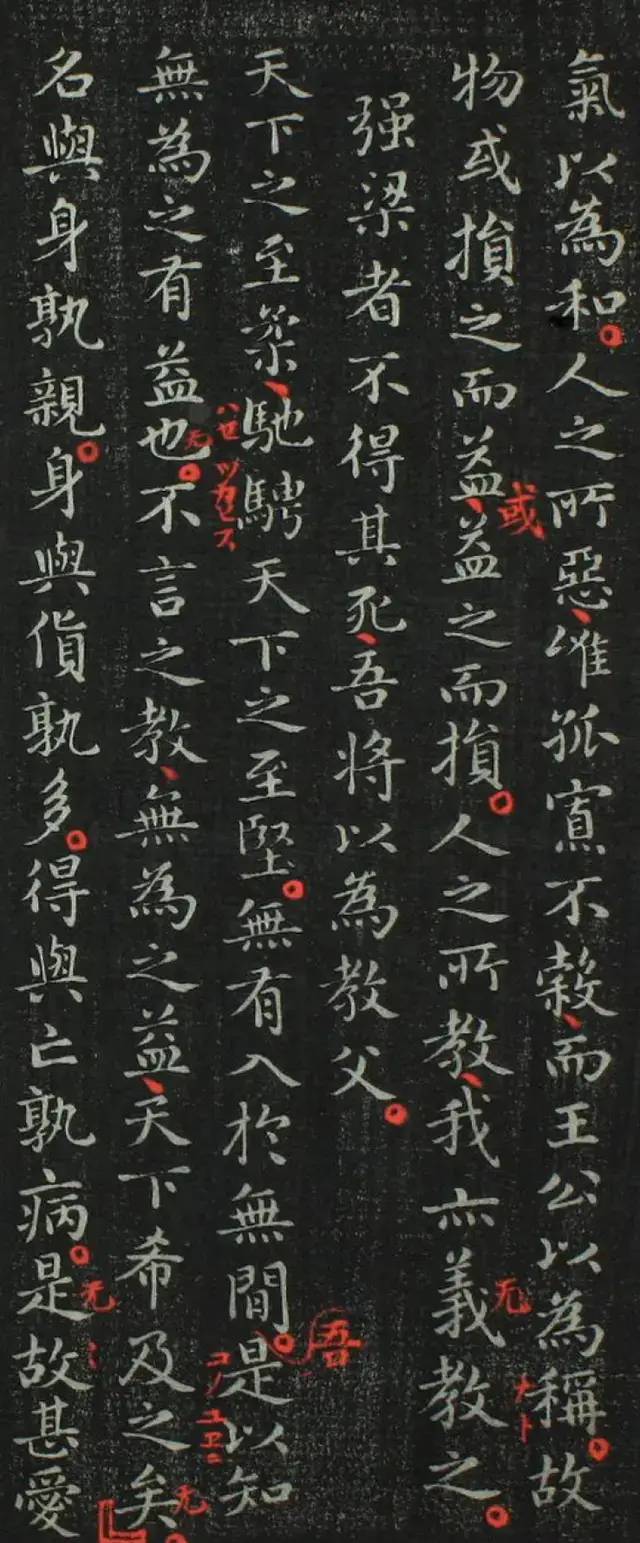 氣以為和。人之所惡、唯孤寡不穀、而王公以為稱。故
或
无
物或損之而益、益之而損。人之所教、我亦義教之。
强梁者不得其死、吾將以為教父。
吾
天下之至柔、馳騁天下之至堅。無有入於無間。是以知
コノユエニ
无
无
無為之有益也。不言之教、無為之益、天下希及之矣。
无
名與身孰親。身與貨孰多。得與亡孰病。是故甚愛